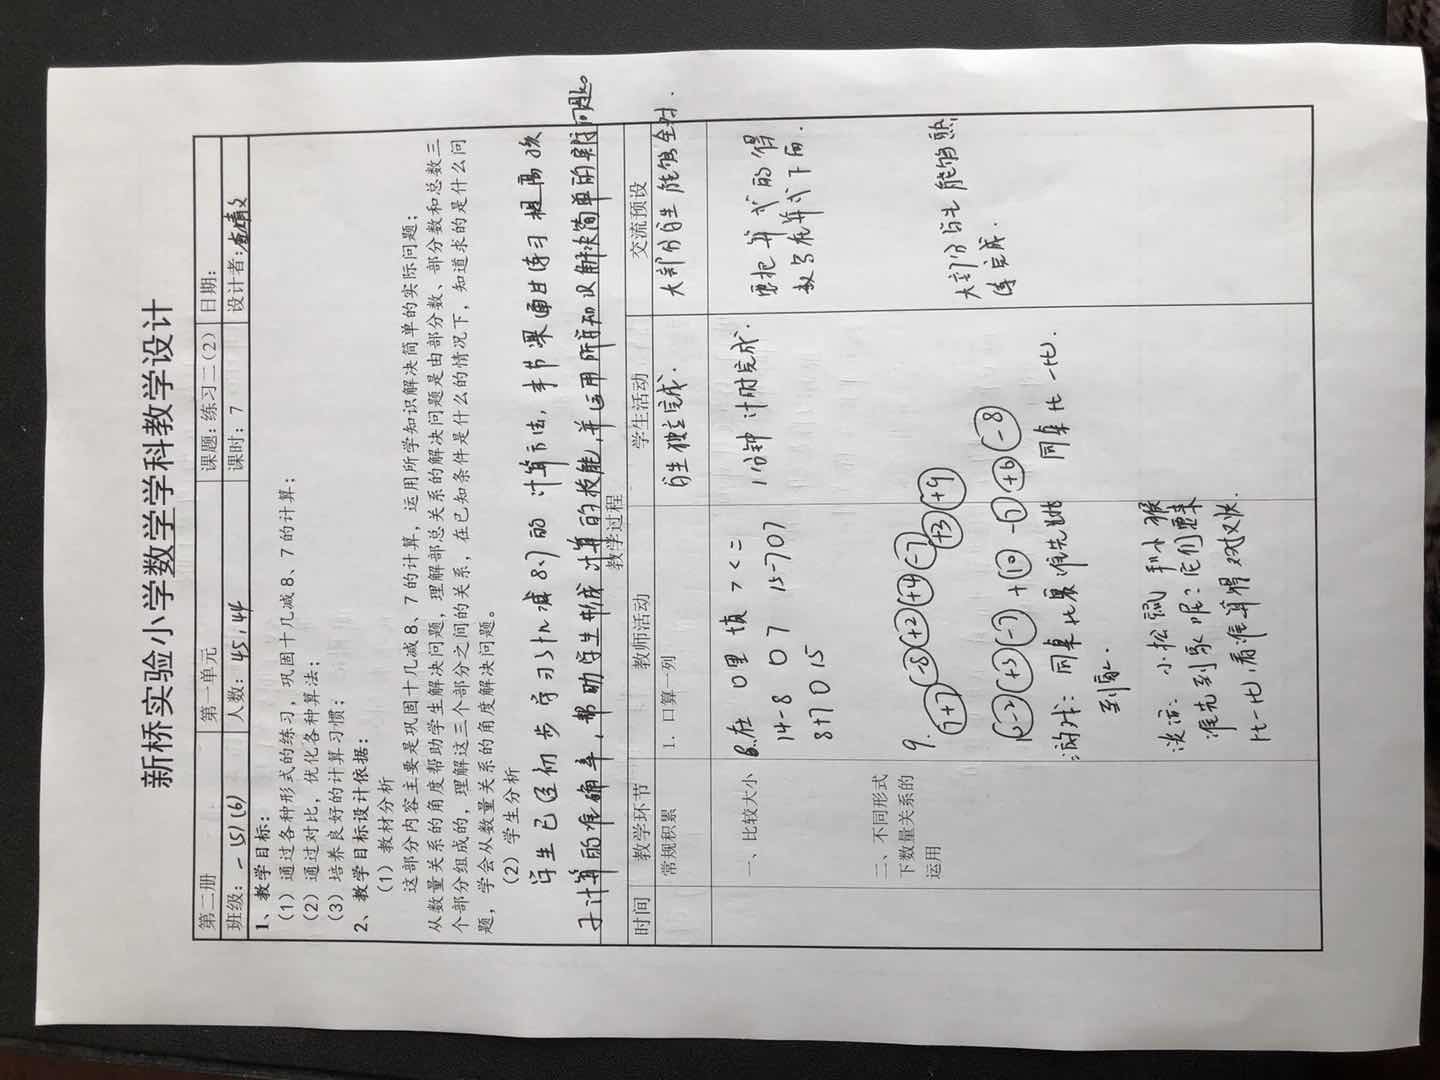 新桥实验小学数学学科教学设计
第二册 第一单元 课题：练习二（2） 日期：
班级：一（5）（6） 人数：45，44 课时：7 设计者：
1、教学目标：
（1）通过各种形式的练习，巩固十几减8、7的计算；
（2）通过对比，优化各种算法；
（3）培养良好的计算习惯；
2、教学目标设计依据：
（1）教材分析
这部分内容主要是巩固十几减8、7的计算，运用所学知识解决简单的实际问题；
从数量关系的角度帮助学生解决问题，理解部总关系的解决问题是由部分数、部分数和总数三
个部分组成的，理解这三个部分之间的关系，在已知条件是什么的情况下，知道求的是什么问
题，学会从数量关系的角度解决问题。
（2）学生分析
学生已经初步学习了十几减8、7的计算方法，本节课通过练习提高孩
子计算的准确率，帮助学生形成计算的技能，并运用所学知识解决简单的实际问题。
教学过程
时间 教学环节 教师活动 学生活动 交流预设
常规积累 1. 口算一列 学生独立完成. 大部分学生能够全对.
一、比较大小 8.在○里填 > < =
14-8 ○ 7 15-7○7
8+7 ○ 15
1分钟计时完成.
要把算式的得
数写在算式下面.
二、不同形式
下数量关系的
运用
9. 7+7 -5 +2 +4 -7 +3 +9
12-2 +5 -7 +10 -7 +6 -8
游戏：同桌比赛谁先跳
到家.
同桌比一比
大部分学生能够熟
练完成.
小松鼠和小猴
谁先到家呢？它们要来
比一比，看谁算得又对又快.